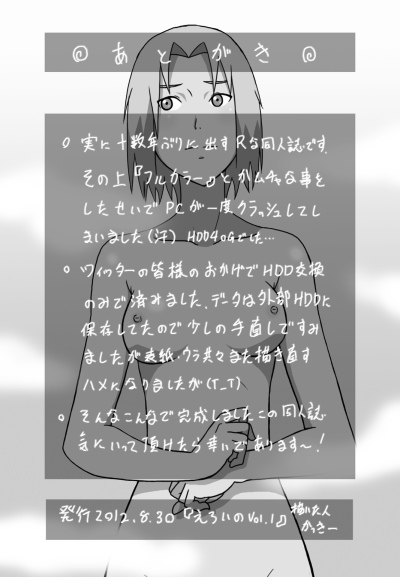 @あとがき@
○ 実に十数年ぶりに出すRな同人誌です.
その上『フルカラー』とかムチャな事を
したせいでPCが一度クラッシュしてし
まいました(汗) HDD40Gでした…
○ ツイッターの皆様のおかげでHDD交換
のみで済みました、データは外部HDDに
保存してたので少しの手直しですみ
ましたが表紙・ウラ共々また描き直す
ハメになりましたが(T_T)
○ そんなこんなで完成しましたこの同人誌
気にいって頂けたら幸いであります〜!
発行2012.8.30『えろいのVol.1』描いた人
かっきー